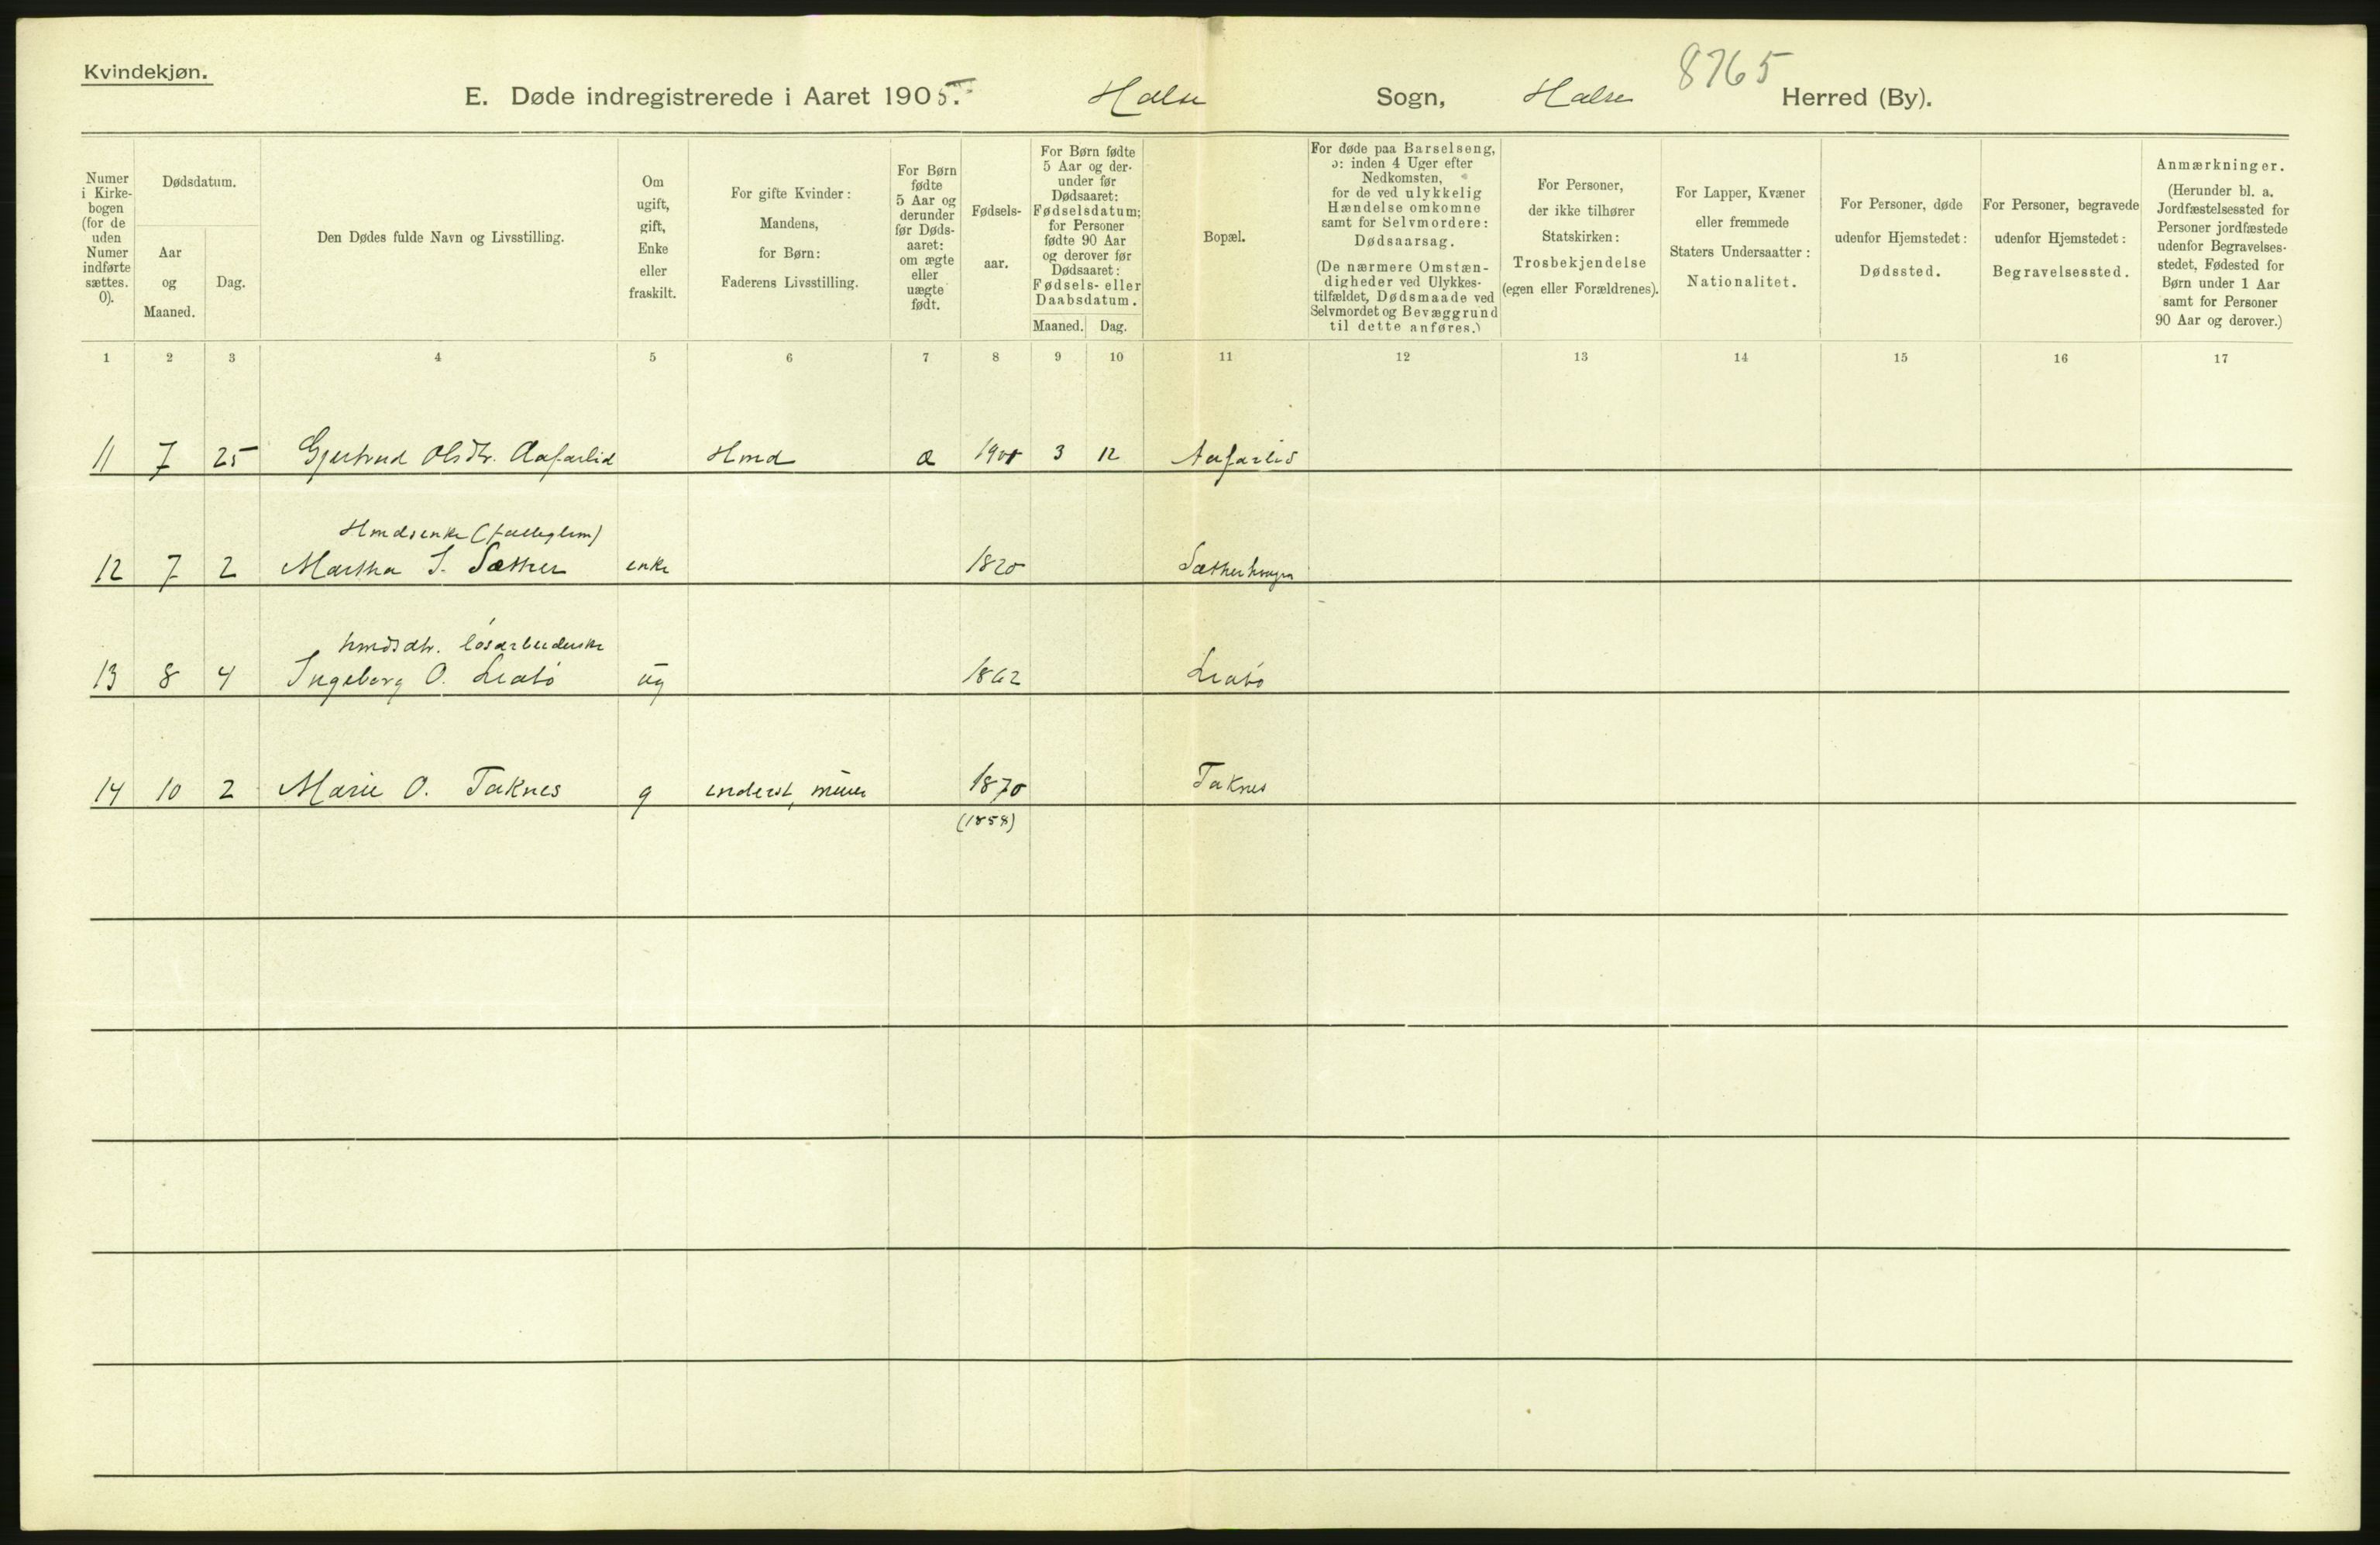 Kvindekjøn.
8765
E. Døde indregistrerede i Aaret 1905. Halse Sogn, Halse Herred (By).
Numer i Kirke-bogen (for de uden Numer indførte sættes. 0).
Dødsdatum.
Aar og Maaned.
Dag.
Den Dødes fulde Navn og Livsstilling.
Om ugift, gift, Enke eller fraskilt.
For gifte Kvinder: Mandens, for Børn: Faderens Livsstilling.
For Børn fødte 5 Aar og derunder før Døds-aaret: om ægte eller uægte født.
Fødsels-aar.
For Børn fødte 5 Aar og der-under før Dødsaaret: Fødselsdatum; for Personer fødte 90 Aar og derover før Dødsaaret: Fødsels- eller Daabsdatum.
Maaned. Dag.
Bopæl.
For døde paa Barselseng, ɔ: inden 4 Uger efter Nedkomsten, for de ved ulykkelig Hændelse omkomne samt for Selvmordere: Dødsaarsag. (De nærmere Omstæn-digheder ved Ulykkes-tilfældet, Dødsmaade ved Selvmordet og Bevæggrund til dette anføres.)
For Personer, der ikke tilhører Statskirken: Trosbekjendelse (egen eller Forældrenes).
For Lapper, Kvæner eller fremmede Staters Undersaatter: Nationalitet.
For Personer, døde udenfor Hjemstedet: Dødssted.
For Personer, begravede udenfor Hjemstedet: Begravelsessted.
Anmærkninger. (Herunder bl. a. Jordfæstelsessted for Personer jordfæstede udenfor Begravelses-stedet, Fødested for Børn under 1 Aar samt for Personer 90 Aar og derover.)
1 2 3 4 5 6 7 8 9 10 11 12 13 14 15 16 17
11 7 25 Gjertrud Olsdtr. Aafarlid Hmd æ 1901 3 12 Aafarlid
Hmdsenke (fattiglem)
12 7 2 Martha I. Sæther enke 1820 Sætherhaugen
hmdsdtr. løsarbeiderske
13 8 4 Ingeborg O. Leabø ug 1862 Leabø
14 10 2 Marie O. Taknes g inderst, murer 1870 Taknes
(1858)